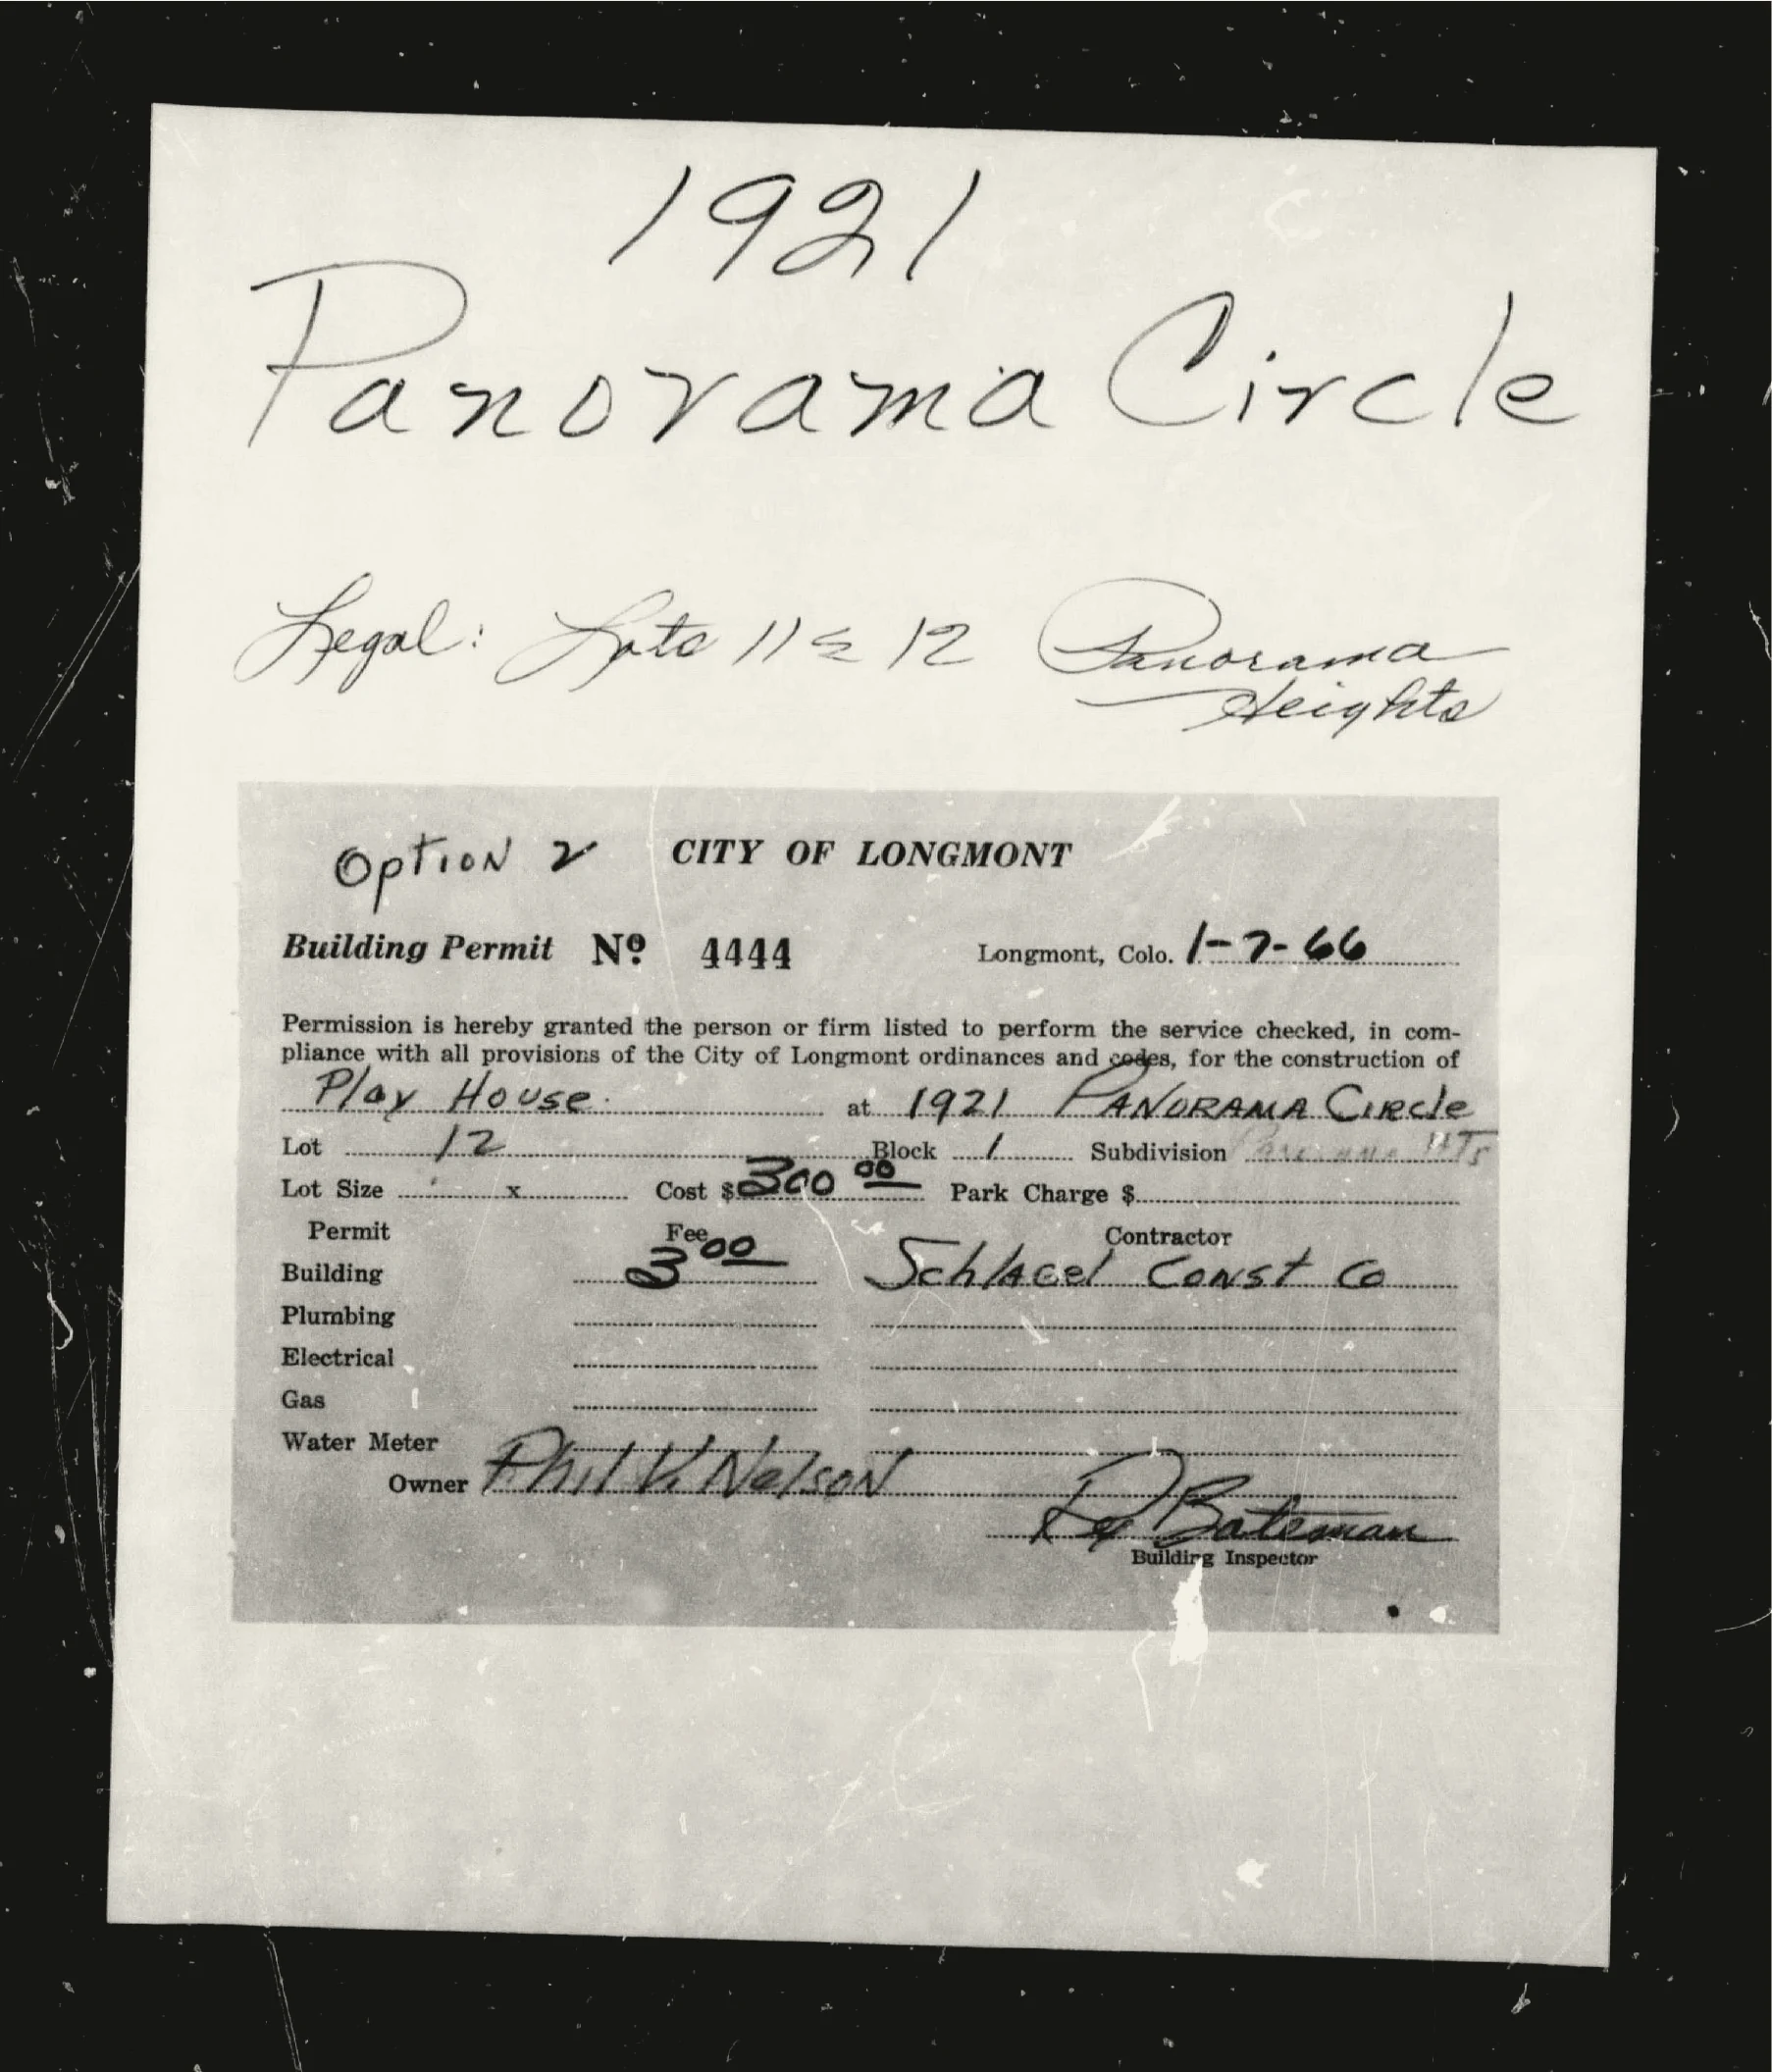 1921
Panorama Circle
Legal: Lots 11 & 12 Panorama
Heights
Option 2 CITY OF LONGMONT
Building Permit Nº 4444 Longmont, Colo. 1-7-66
Permission is hereby granted the person or firm listed to perform the service checked, in com-
pliance with all provisions of the City of Longmont ordinances and codes, for the construction of
Play House at 1921 PANORAMA CIRCle
Lot 12 Block 1 Subdivision Panorama HTS
Lot Size x Cost $300 00 Park Charge $
Permit Fee Contractor
Building 3 00 Schlagel Const Co
Plumbing
Electrical
Gas
Water Meter
Owner Phil V. Nelson
Bateman
Building Inspector